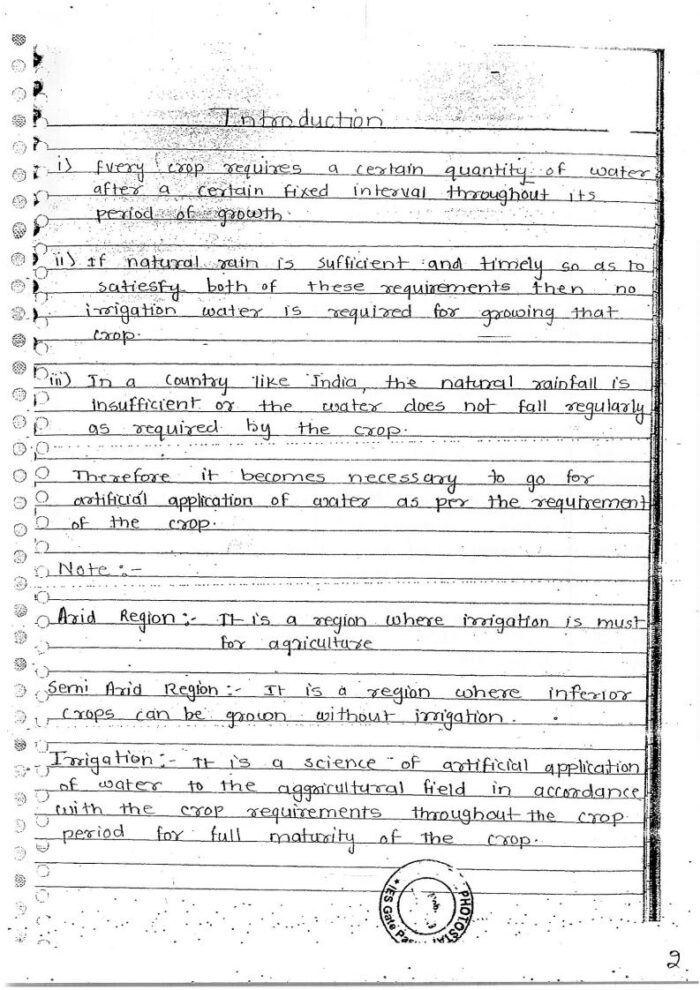 Introduction
i) Every crop requires a certain quantity of water
after a certain fixed interval throughout its
period of growth.
ii) If natural rain is sufficient and timely so as to
satiesfy both of these requirements then no
irrigation water is required for growing that
crop.
iii) In a country like India, the natural rainfall is
insufficient or the water does not fall regularly
as required by the crop.
Therefore it becomes necessary to go for
artificial application of water as per the requirement
of the crop.
Note :-
Arid Region :- It is a region where irrigation is must
for agriculture
Semi Arid Region :- It is a region where inferior
crops can be grown without irrigation.
Irrigation :- It is a science of artificial application
of water to the aggricultural field in accordance
with the crop requirements throughout the crop
period for full maturity of the crop.
IES Gate
PHOTOSTAT
2